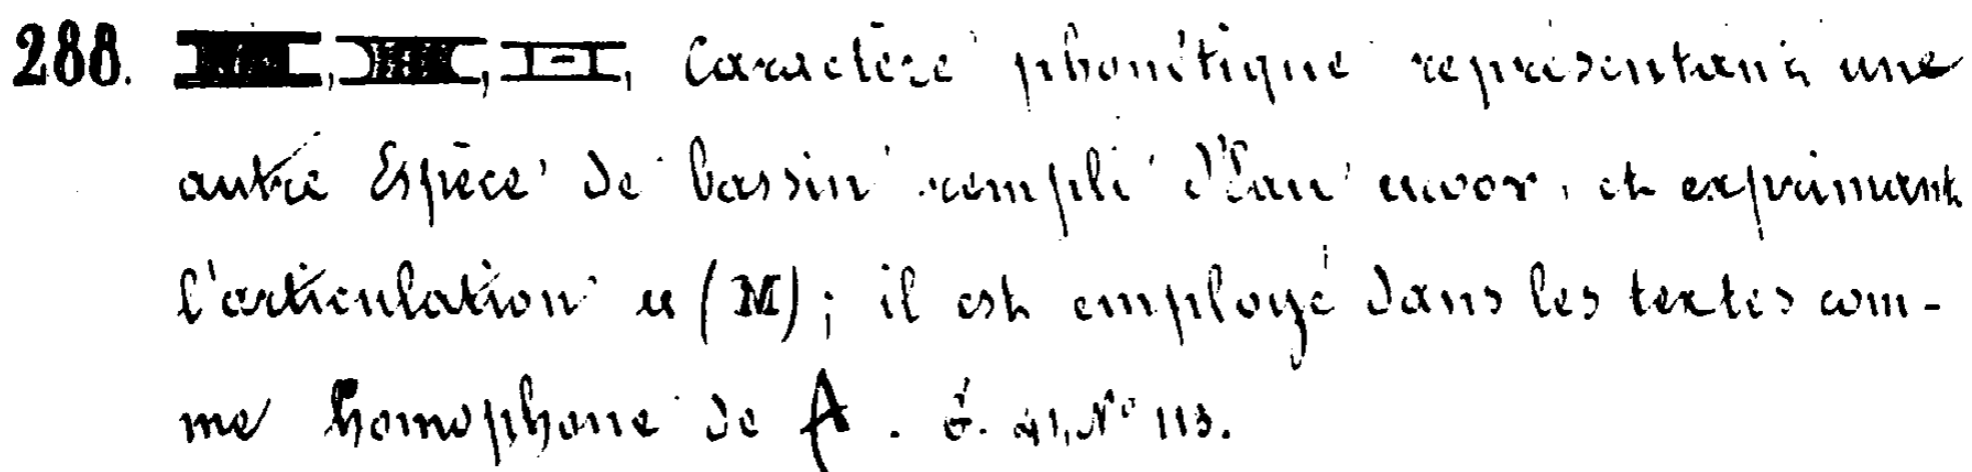 288. , , , Caractère phonétique représentant une
autre Espèce de bassin rempli d'Eau , et exprimant
l'articulation ⲙ (M); il est employé dans les textes com-
me homophone de . G. 41, N° 113.